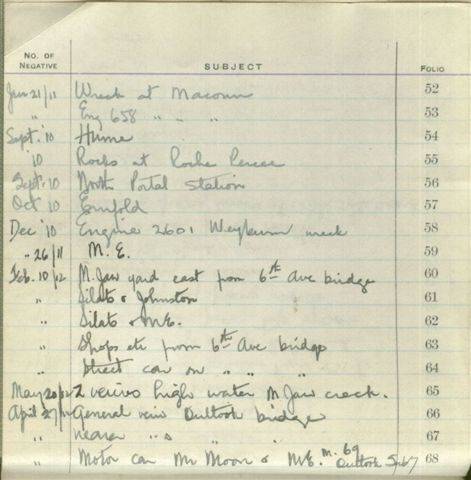 NO. OF NEGATIVE SUBJECT FOLIO
Jan 21/11 Wreck at Macoun 52
" Eng 658 " " " 53
Sept. '10 Hume 54
'10 Rocks at Roche Percee 55
Sept. 10 North Portal Station 56
Oct 10 Ernfold 57
Dec '10 Engine 2601 Weyburn wreck 58
" 26/11 M. E. 59
Feb. 10/12 M. Jaw yard east from 6th Ave bridge 60
" Silato & Johnston 61
" Silato & ME. 62
" Shops etc from 6th Ave bridge 63
" Street car on " " " 64
May 20/12 2 veiws high water M Jaw creek. 65
April 27/12 General veiw Outlook bridge 66
" nearer " " " 67
" Motor car Mr Moon & ME. m. 69 Outlook Sub 68